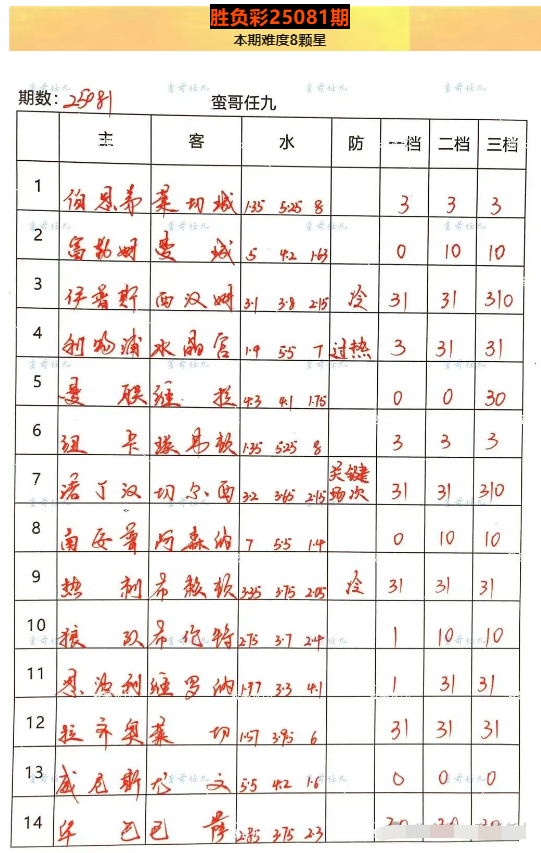 胜负彩25081期
本期难度8颗星
期数：25081 蛮哥任九
主 客 水 防 一档 二档 三档
1 伯恩茅 莱切城 1.35 5.25 8 3 3 3
2 富勒姆 曼城 5 4.2 1.63 0 10 10
3 伊普斯 西汉姆 3.1 3.8 2.15 冷 31 31 310
4 利物浦 水晶宫 1.4 5.5 7 过热 3 31 31
5 曼联 维拉 4.3 4.1 1.75 0 0 30
6 纽卡 埃弗顿 1.35 5.25 8 3 3 3
7 诺丁汉 切尔西 3.2 3.65 2.15 关键场次 31 31 310
8 南安普 阿森纳 7 5.5 1.4 0 10 10
9 热刺 布赖顿 3.35 3.75 2.05 冷 31 31 31
10 狼队 布伦特 2.75 3.7 2.4 1 10 10
11 恩波利 维罗纳 1.97 3.3 4.1 1 31 31
12 拉齐奥 莱切 1.57 3.95 6 31 31 31
13 威尼斯 尤文 5.5 4.2 1.6 0 0 0
14 毕巴 巴萨 2.85 3.75 2.3 30 30 30